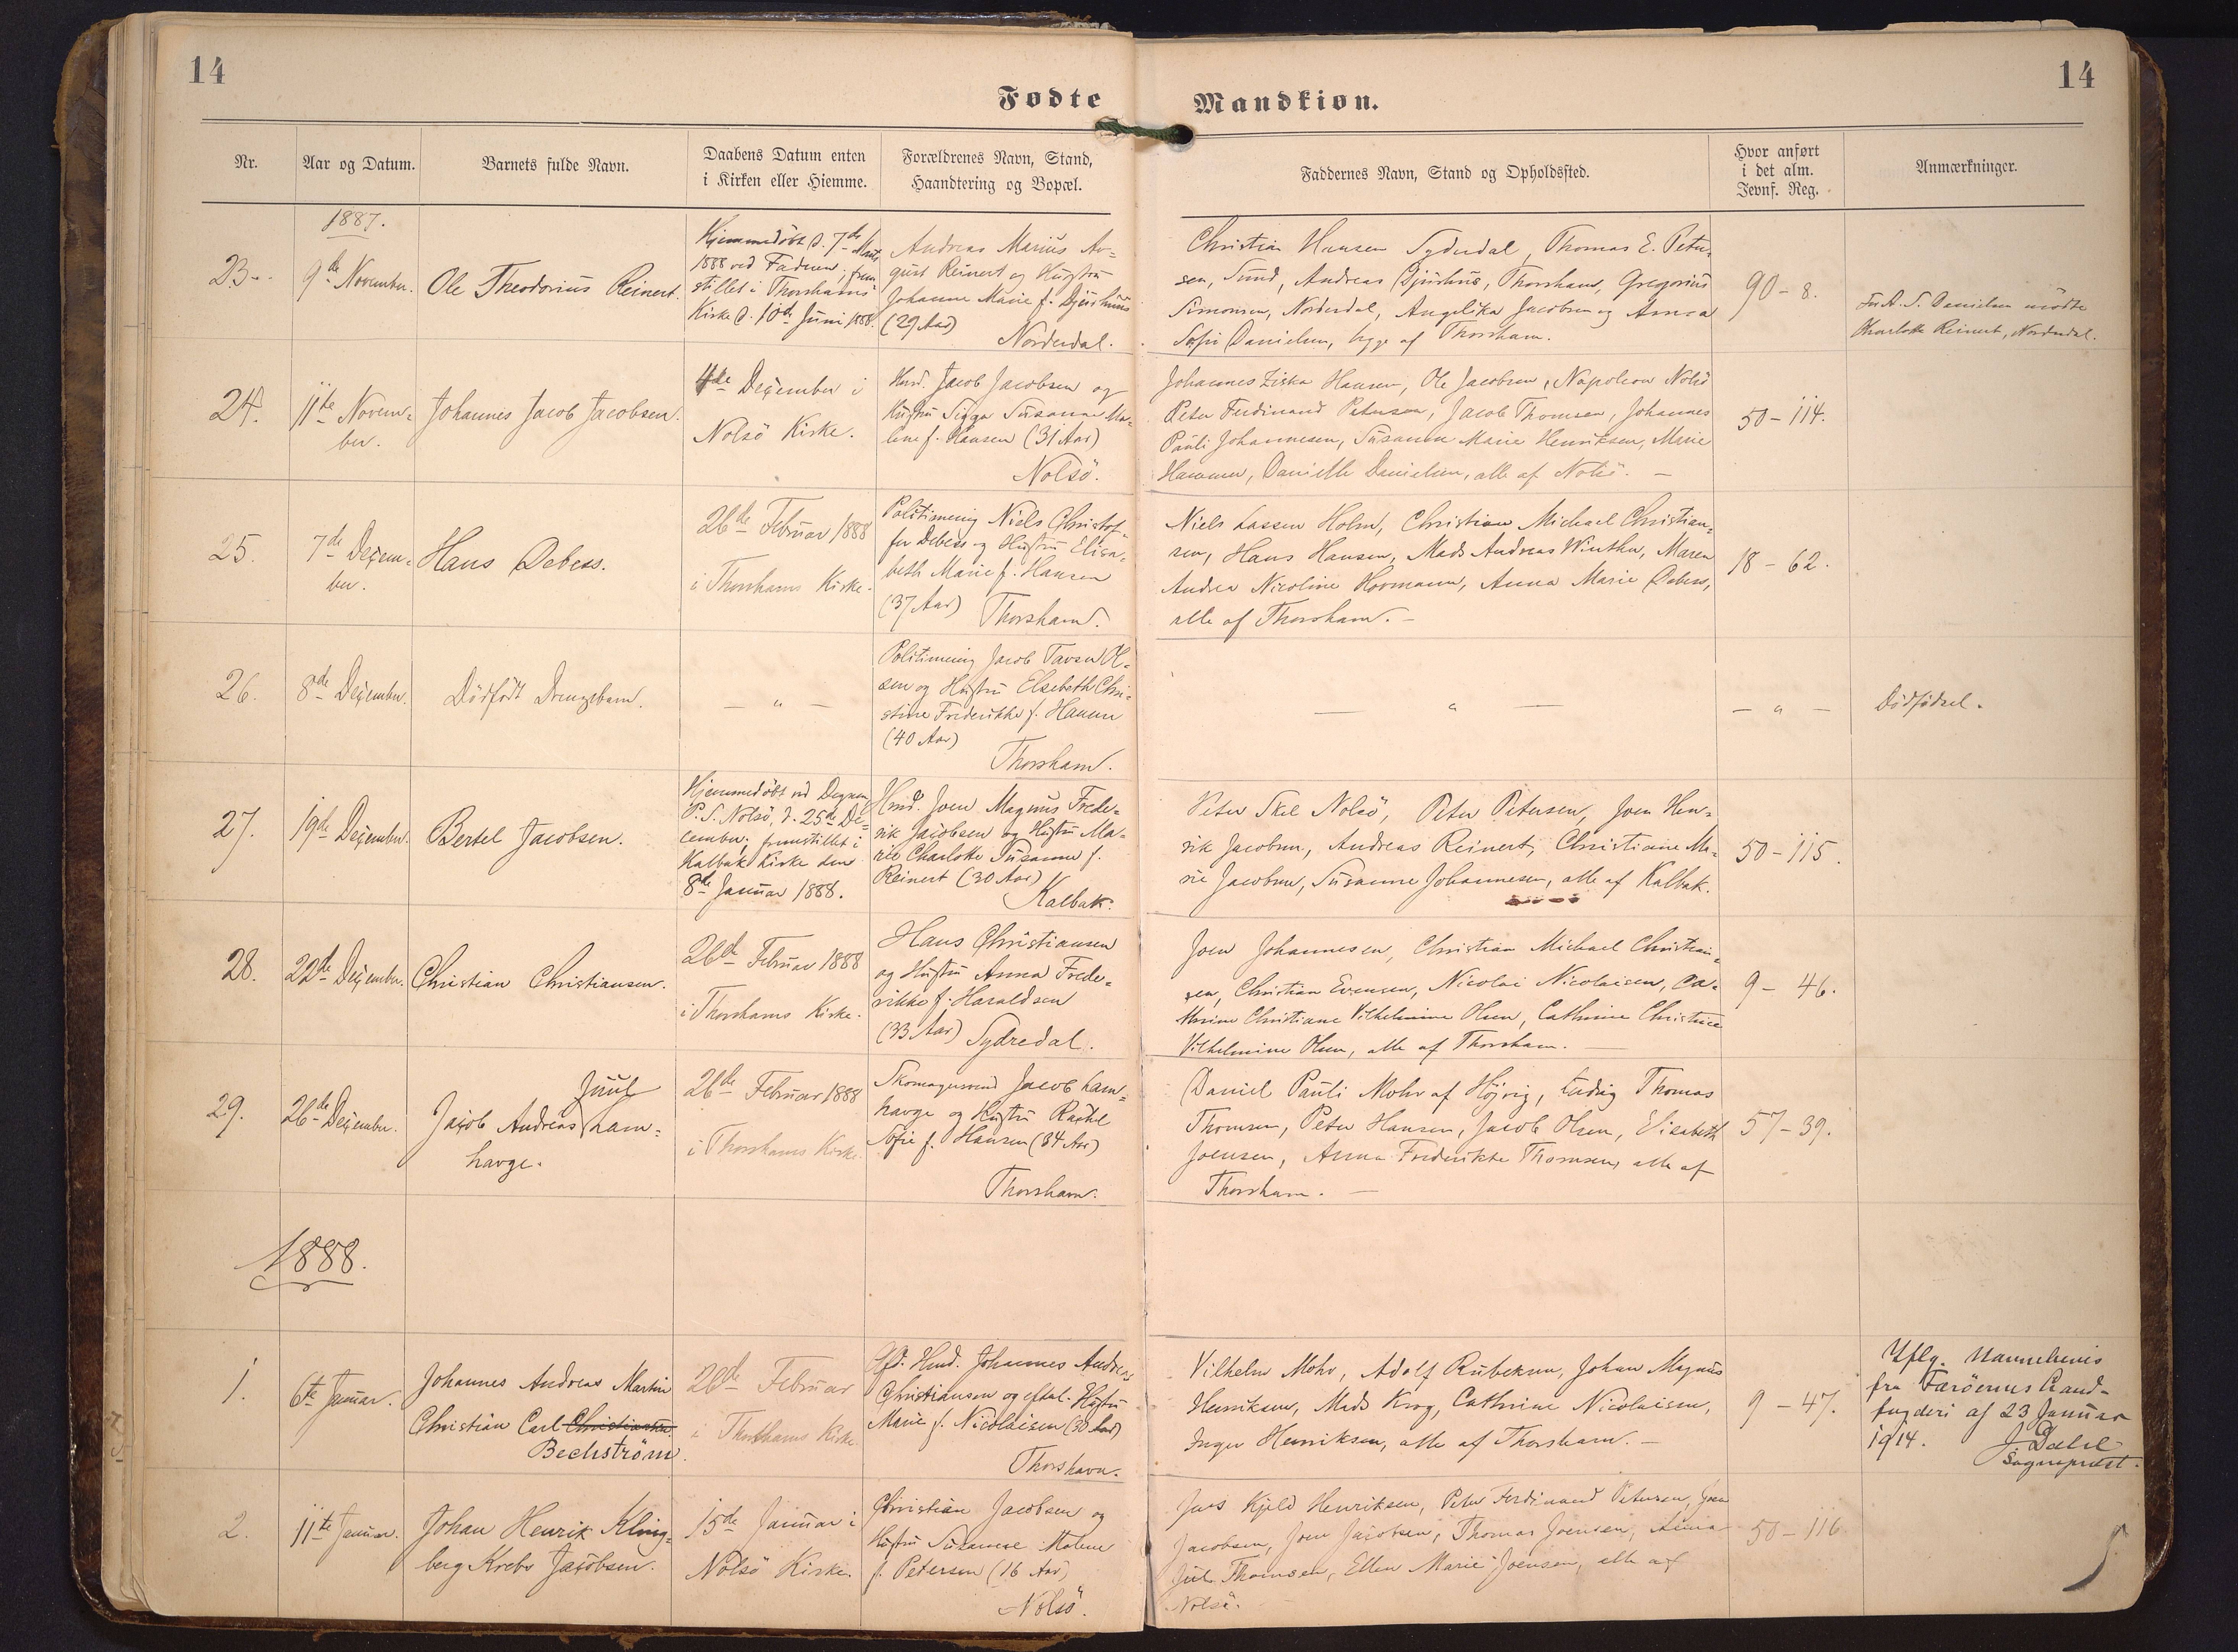 14
14
Fødte
Mandkiøn.
Nr.
Aar og Datum.
Barnets fulde Navn.
Daabens Datum enten
i Kirken eller Hiemme.
Forældrenes Navn, Stand,
Haandtering og Bopæl.
Faddernes Navn, Stand og Opholdssted.
Hvor anført
i det alm.
Jevnf. Reg.
Anmærkninger.
1887.
23.
9de November.
Ole Theodorius Reinert.
Hjemmedöbt d. 7de Marts
1888 ved Faderen; frem-
stillet i Thorshavns
Kirke d. 10de Juni 1888.
Andreas Marius Au-
gust Reinert og Hustru
Johanne Marie f. Djurhuus
(29 Aar)
Norderdal.
Christian Hansen Syderdal, Thomas E. Peter-
sen, Sund, Andreas Djurhus, Thorshavn, Gregorius
Simonsen, Norderdal, Angelika Jacobsen og Anna
Sofie Danielsen, begge af Thorshavn.
90 - 8.
For A. S. Danielsen mödte
Charlotte Reinert, Norderdal.
24.
11te Novem-
ber.
Johannes Jacob Jacobsen.
4de December i
Nolsö Kirke.
Hmd. Jacob Jacobsen og
Hustru Sigga Susanna Ma-
lene f. Hansen (31 Aar)
Nolsö.
Johannes Ziska Hansen, Ole Jacobsen, Napoleon Nolsö
Peter Ferdinand Petersen, Jacob Thomsen, Johannes
Pauli Johannesen, Susanna Marie Henriksen, Marie
Hammer, Danielle Danielsen, alle af Nolsö. -
50 - 114.
25.
7de Decem-
ber.
Hans Debess.
26de Februar 1888
i Thorshavns Kirke.
Politimening Niels Christof-
fer Debess og Hustru Elisa-
beth Marie f. Hansen
(37 Aar) Thorshavn.
Niels Lassen Holm, Christian Michael Christian-
sen, Hans Hansen, Mads Andreas Winther, Maren
Andrea Nicoline Hovmann, Anna Marie Debess,
alle af Thorshavn. -
18 - 62.
26.
8de December.
Dödfödt Drengebarn.
- " -
Politimening Jacob Tavsen Ol-
sen og Hustru Elsebeth Chri-
stine Frederikke f. Hansen
(40 Aar)
Thorshavn.
- " -
- " -
Dödfödsel.
27.
19de December.
Bertel Jacobsen.
Hjemmedöbt ved Degnen
P. S. Nolsö, d. 25de De-
cember; fremstillet i
Kalbak Kirke den
8de Januar 1888.
Hmd. Joen Magnus Frede-
rik Jacobsen og Hustru Ma-
rie Charlotte Susanne f.
Reinert (30 Aar)
Kalbak.
Peter Skel Nolsö, Peter Petersen, Joen Hen-
rik Jacobsen, Andreas Reinert, Christiane Ma-
rie Jacobsen, Susanne Johannesen, alle af Kalbak.
50 - 115.
28.
22de December.
Christian Christiansen.
26de Februar 1888
i Thorshavns Kirke.
Hans Christiansen
og Hustru Anna Frede-
rikke f. Haraldsen
(33 Aar) Sydredal.
Joen Johannesen, Christian Michael Christian-
sen, Christian Evensen, Nicolai Nicolaisen, Ca-
thrine Christiane Vilhelmine Olsen, Cathrine Christine
Vilhelmine Olsen, alle af Thorshavn. -
9 - 46.
29.
26de December.
Juul
Jacob Andreas Lam-
havge.
26de Februar 1888
i Thorshavns Kirke.
Skomagersvend Jacob Lam-
havge og Hustru Rachel
Sofie f. Hansen (34 Aar)
Thorshavn.
Daniel Pauli Mohr af Höjvig, Ludvig Thomas
Thomsen, Peter Hansen, Jacob Olsen, Elisabeth
Joensen, Anna Frederikke Thomsen, alle af
Thorshavn. -
57 - 39.
1888.
1.
6te Januar.
Johannes Andreas Martin
Christian Carl Christiansen.
Bechström.
26de Februar
i Thorshavns Kirke.
Afd. Hmd. Johannes Andreas
Christiansen og eftal. Hustru
Marie f. Nicolaisen (30 Aar)
Thorshavn.
Vilhelm Mohr, Adolf Rubeksen, Johan Magnus
Henriksen, Mads Krog, Cathrine Nicolaisen,
Inger Henriksen, alle af Thorshavn. -
9 - 47.
Iflg. Navnebevis
fra Færöernes Land-
fogderi af 23 Januar
1914.
J. Dahl
Sognepræst.
2.
11te Januar.
Johan Henrik Kling-
berg Krebs Jacobsen.
15de Januar i
Nolsö Kirke.
Christian Jacobsen og
Hustru Susanne Malene
f. Petersen (16 Aar)
Nolsö.
Jens Kjeld Henriksen, Peter Ferdinand Petersen, Joen
Jacobsen, Joen Jacobsen, Thomas Joensen, Anna
Juul Thomsen, Ellen Marie Joensen, alle af
Nolsö.
50 - 116